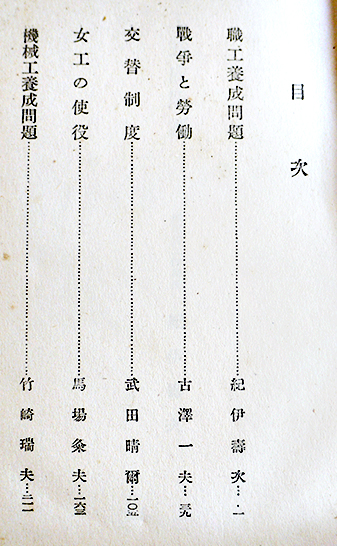 目次
職工養成問題……紀伊壽次…一
戰爭と勞働……古澤一夫…三九
交替制度……武田晴爾…一〇五
女工の使役……馬場粂夫…一六三
機械工養成問題……竹崎瑞夫…二一一